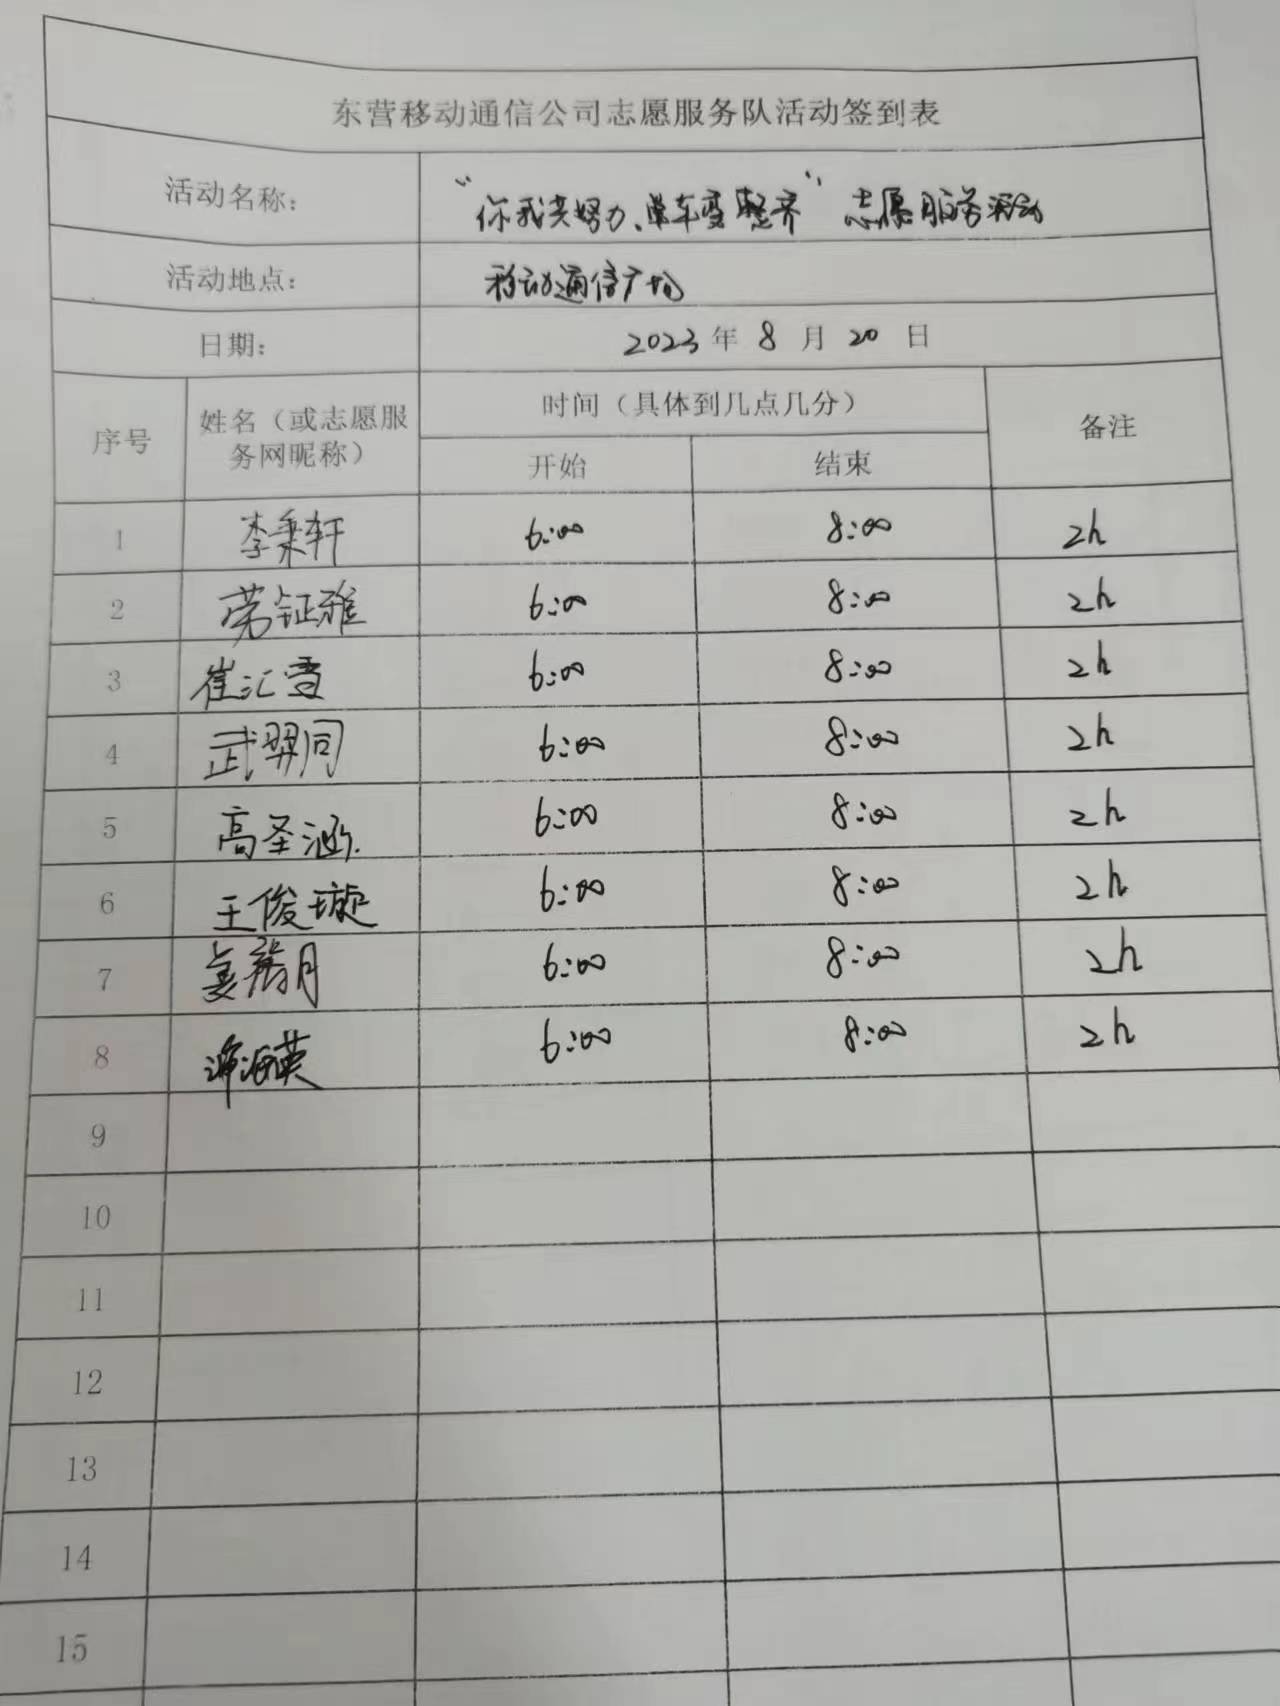 东营移动通信公司志愿服务队活动签到表
活动名称： “你我共努力、单车变整齐”志愿服务活动
活动地点： 移动通信广场
日期： 2023 年 8 月 20 日
序号 姓名（或志愿服务网昵称） 时间（具体到几点几分） 备注
开始 结束
1 李秉轩 6:00 8:00 2h
2 劳钲雅 6:00 8:00 2h
3 崔汇雪 6:00 8:00 2h
4 武羿同 6:00 8:00 2h
5 高圣涵 6:00 8:00 2h
6 王俊璇 6:00 8:00 2h
7 姜 月 6:00 8:00 2h
8 海英 6:00 8:00 2h
9
10
11
12
13
14
15